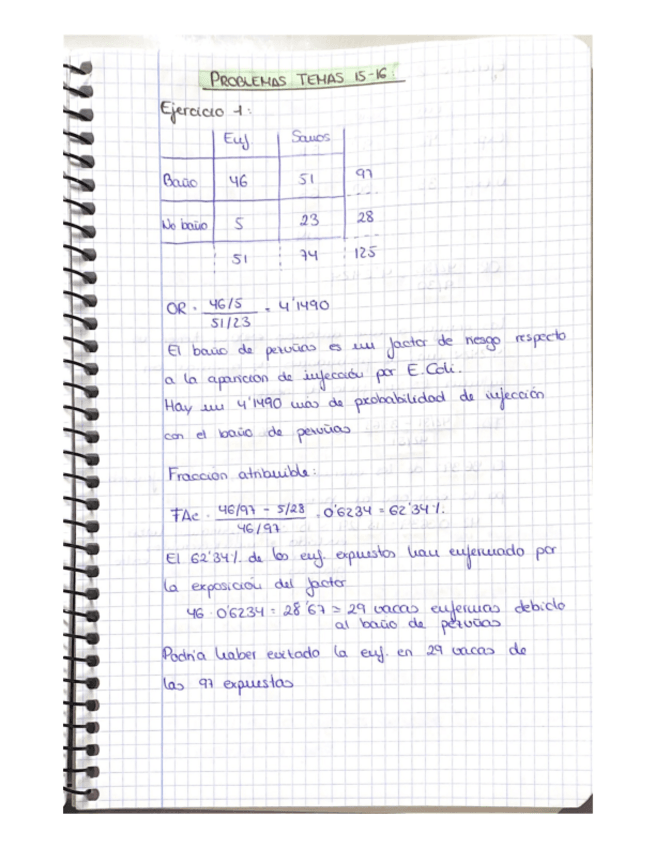 PROBLEMAS TEMAS 15-16:
Ejercicio 1:
Enf Sanos
Baño 46 51 97
No baño 5 23 28
51 74 125
OR = 46/5 / 51/23 = 4'1490
El baño de pezuñas es un factor de riesgo respecto
a la aparición de infección por E. Coli.
Hay un 4'1490 más de probabilidad de infección
con el baño de pezuñas
Fracción atribuible:
FAe = 46/97 - 5/28 / 46/97 = 0'6234 = 62'34%.
El 62'34% de los enf. expuestos han enfermado por
la exposición del factor
46 · 0'6234 = 28'67 ≈ 29 vacas enfermas debido
al baño de pezuñas
Podría haber evitado la enf. en 29 vacas de
las 97 expuestas